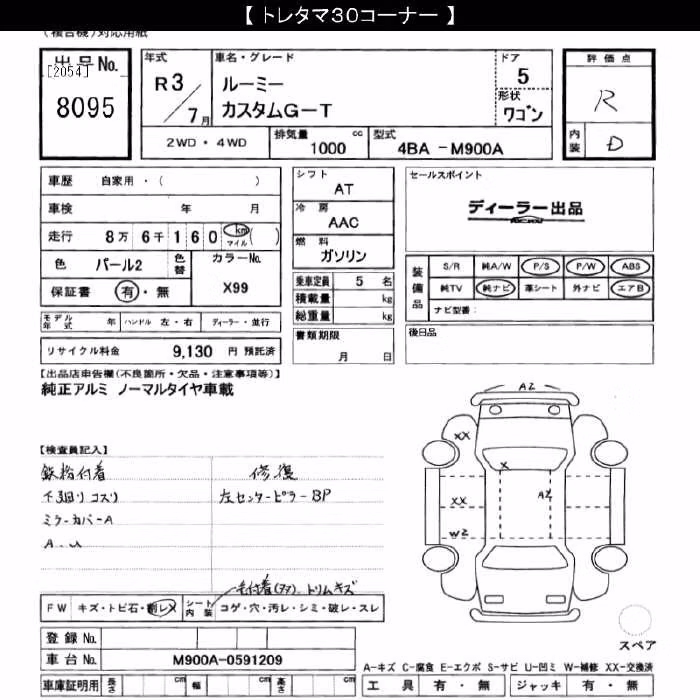 【 トレタマ30コーナー 】
(複合機)対応用紙
出品No.
[2054]
8095
年式
R 3 / 7 月
車名・グレード
ルーミー
カスタムG-T
ドア
5
形状
ワゴン
評価点
R
内装
D
2WD・4WD
排気量
1000 cc
型式
4BA -M900A
車歴 自家用・( )
車検 年 月
走行 8万 6千 1 6 0 km マイル ( )
色 パール2
色替
カラーNo.
X99
保証書 有・無
シフト
AT
冷房
AAC
燃料
ガソリン
乗車定員 5 名
積載量 kg
総重量 kg
セールスポイント
ディーラー出品
装備品
S/R 純A/W P/S P/W ABS
純TV 純ナビ 革シート 外ナビ エアB
ナビ型番:
モデル年式 年 ハンドル 左・右 ディーラー・並行
書類期限
月 日
後日品
リサイクル料金 9,130 円 預託済
【出品店申告欄(不良箇所・欠品・注意事項等)】
純正アルミ ノーマルタイヤ車載
【検査員記入】
鉄粉付着
下廻りコスリ
ミラーカバーA
A.U
修復
左センターピラーBP
毛付着(タタ).トリムキズ
FW キズ・トビ石・割レX
シート内装 コゲ・穴・汚レ・シミ・破レ・スレ
AZ
XX
X
XX
AZ
WZ
スペア
登録No.
車台No. M900A-0591209
A-キズ C-腐食 E-エクボ S-サビ U-凹ミ W-補修 XX-交換済
車庫証明用 長さ cm 幅 cm 高さ cm
工具 有・無 ジャッキ 有・無